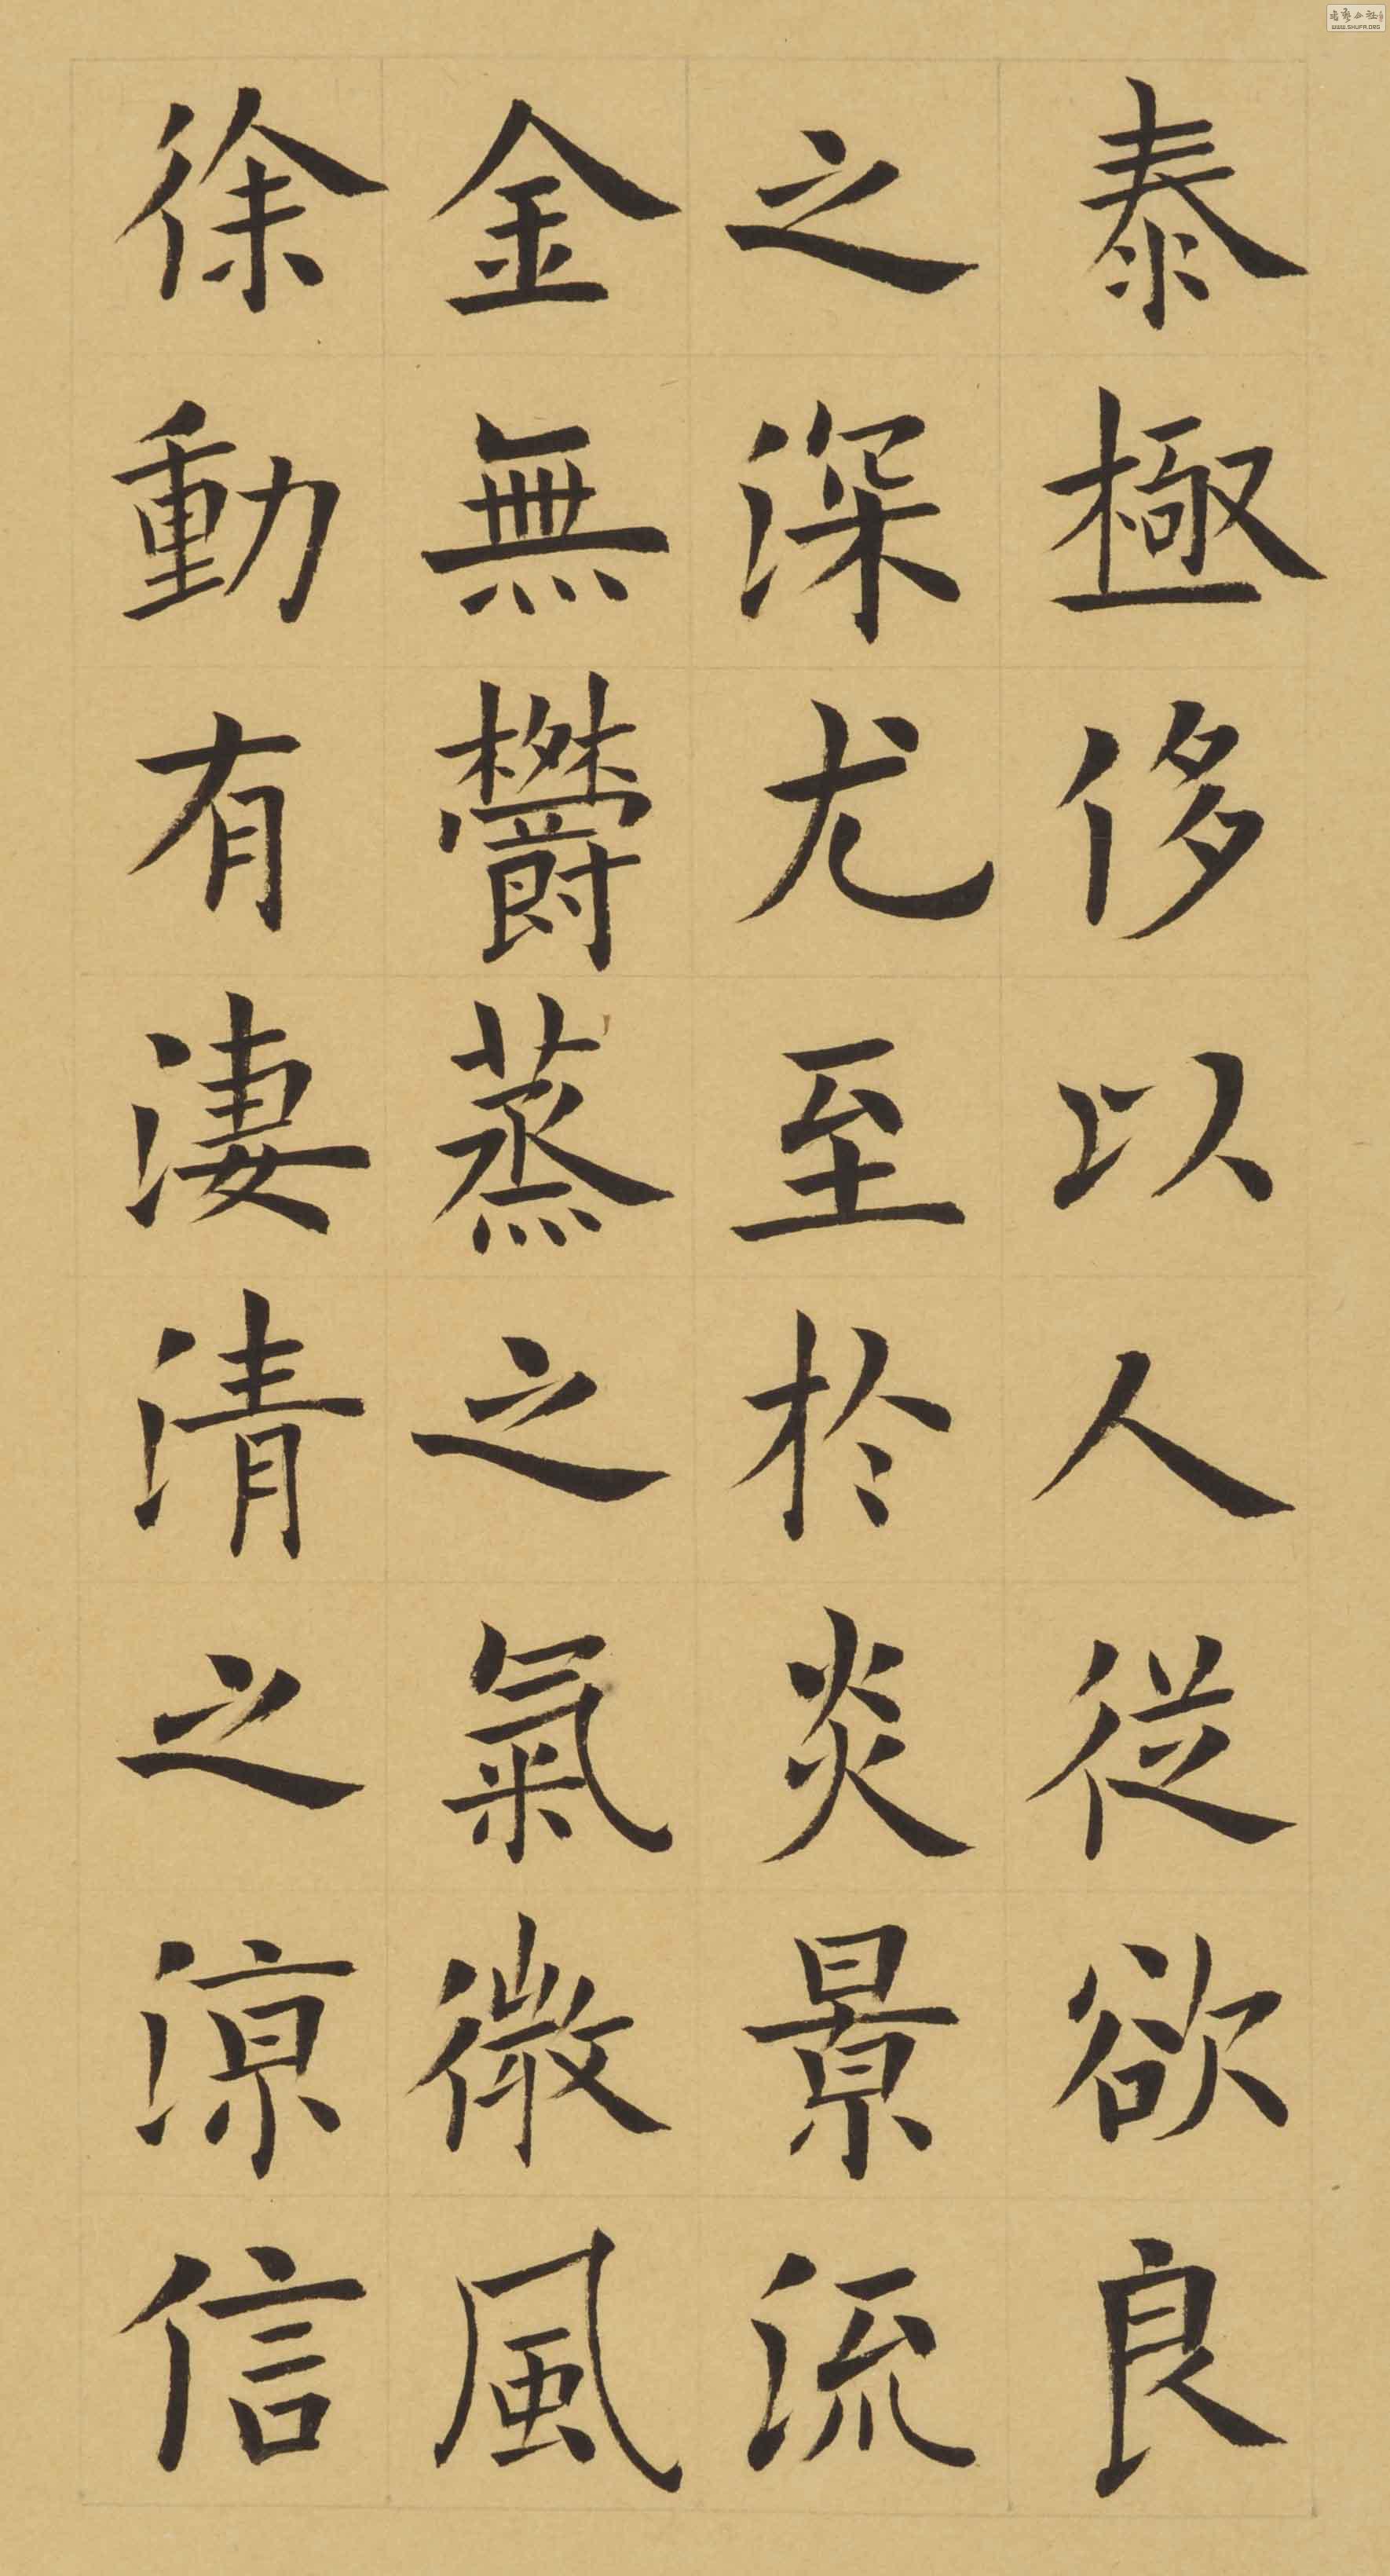 泰極侈以人從欲良
之深尤至於炎景流
金無鬱蒸之氣微風
徐動有淒清之涼信
WWW.SHUFA.ORG